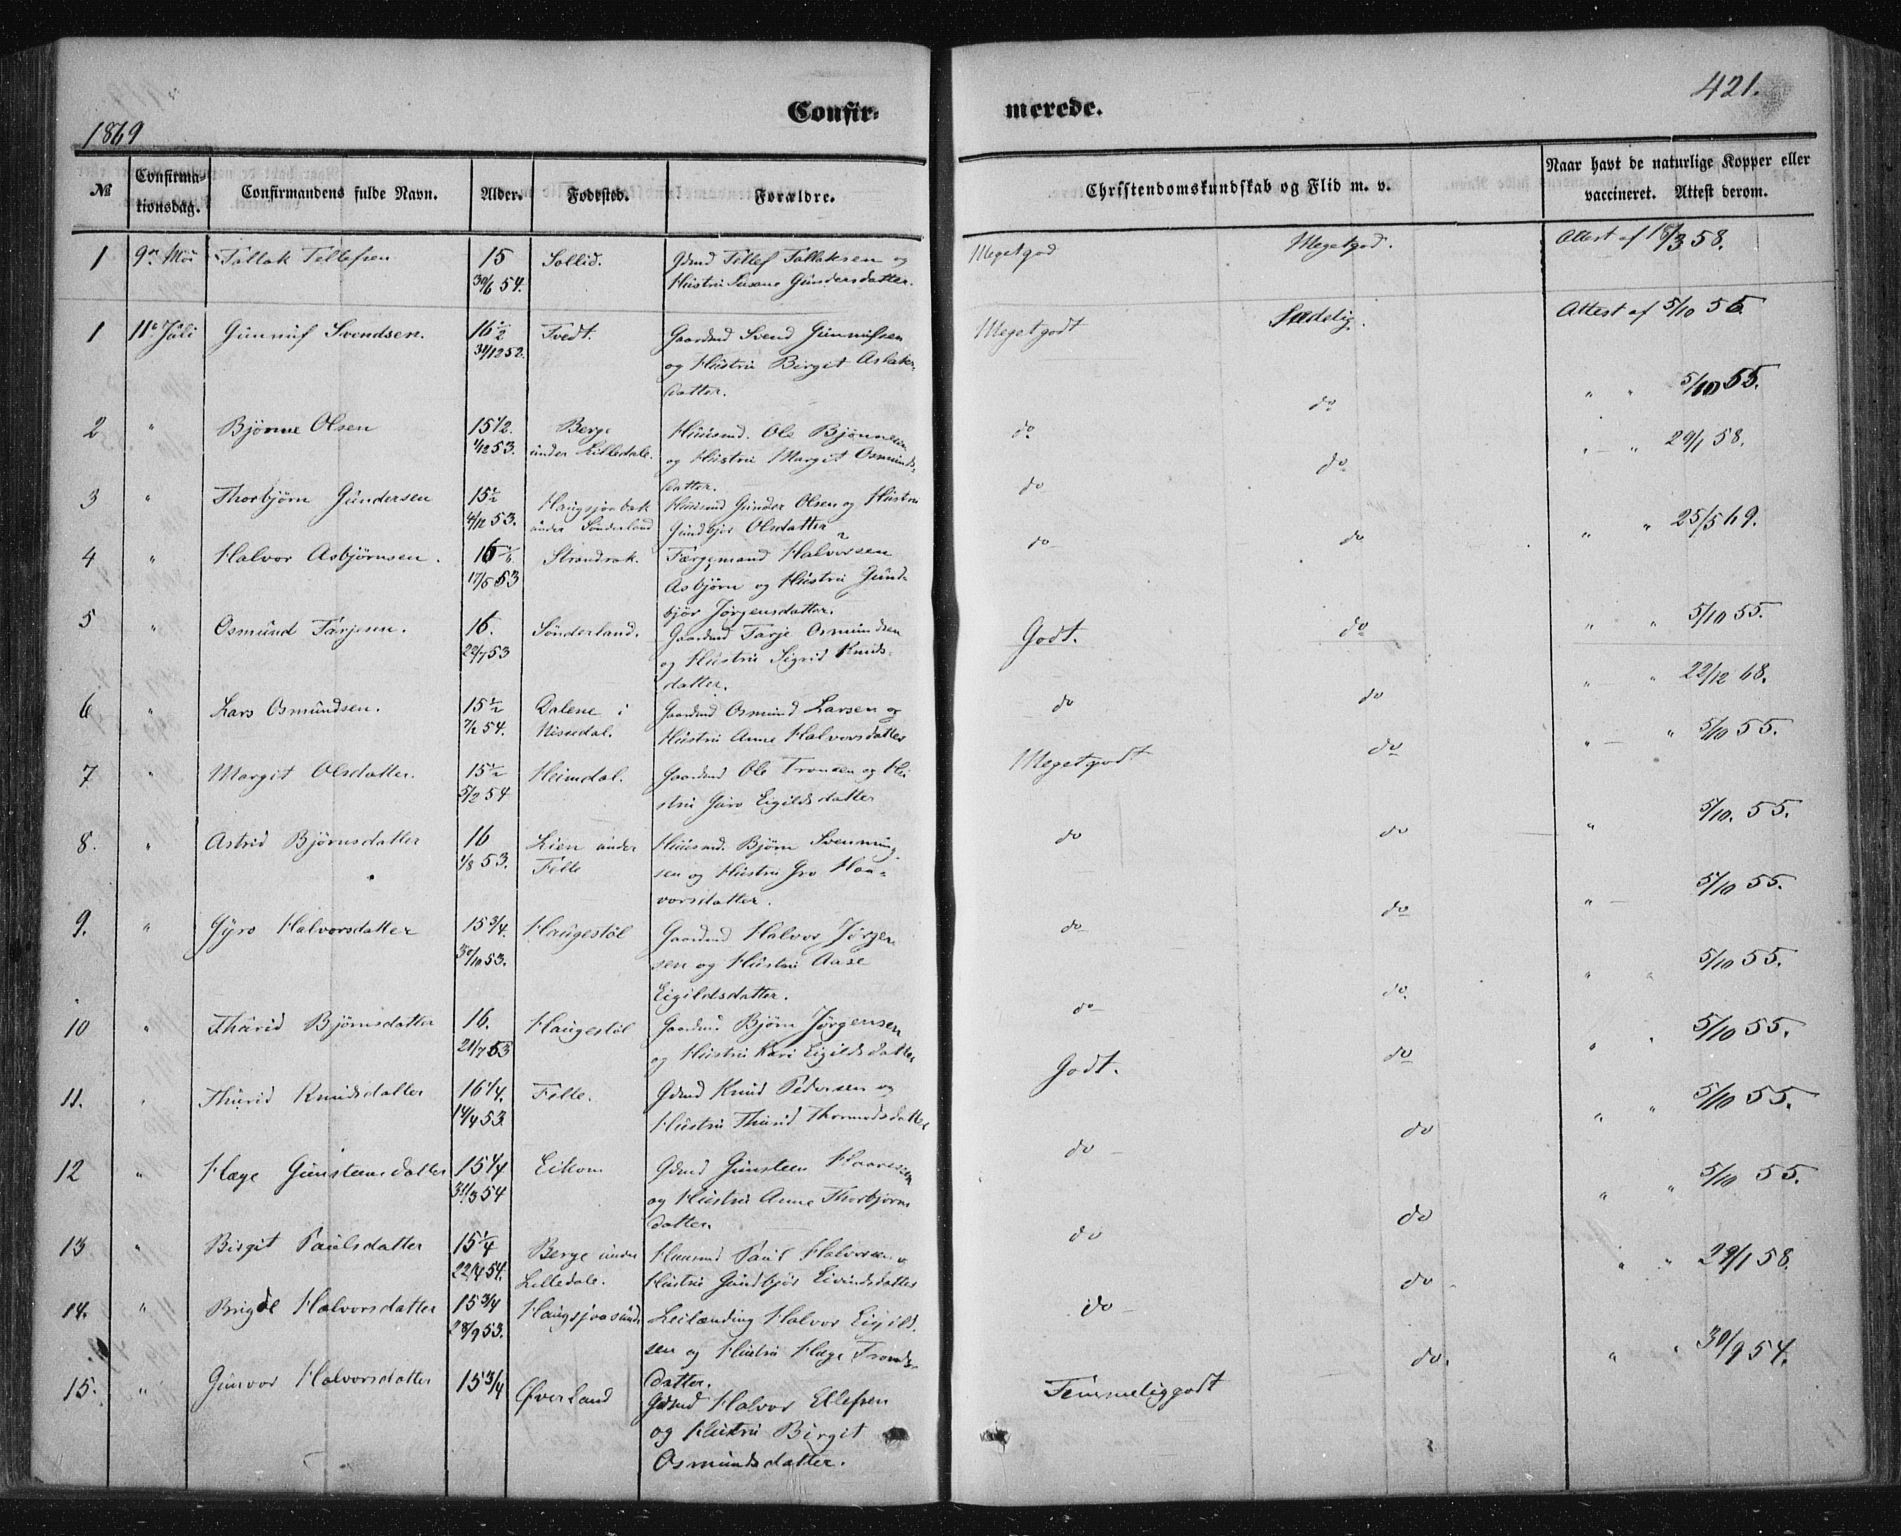 421.
Confir- merede.
1869
№ Confirma-tionsdag. Confirmandens fulde Navn. Alder. Fødested. Forældre. Christendomskundskab og Flid m. v. Naar havt de naturlige Kopper eller vaccineret. Attest derom.
1 9de Mai Tallak Tellefsen 15 Sollid. Gdmd Tellef Tallaksen og Megetgod Megetgod. Attest af 18/3 58.
30/6 54. Hustru Susane Gundersdatter.
1 11te Juli Gunnuf Svendsen. 16½ Tvedt. Gaardmd Svend Gunnufsen Megetgodt Sædelig. Attest af 5/10 55.
31/12 52. og Hustru Birgit Aslaks-
datter.
2 " Bjønne Olsen 15 1/2. Berge Huusmd. Ole Bjønnesen do do " " 5/10 55.
1/12 53. under Lilledale. og Hustru Margit Osmunds-
datter.
3 " Thorbjørn Gundersen 15½ Haugsjaabak Huusmd Gunder Olsen og Hustru do do " " 29/1 58.
4/12 53. under Sønderland Gundbjør Olsdatter
4 " Halvor Asbjørnsen. 16 Strandrak. Færgemand Halvorsen do do " " 25/5 69.
17/5 53 Asbjørn og Hustru Gund-
bjør Jørgensdatter.
5 " Osmund Tarjesen. 16. Sønderland. Gaardmd Tarje Osmundsen Godt. do " " 5/10 55.
22/7 53 og Hustru Sigrid Knuds-
datter.
6 " Lars Osmundsen. 15½ Dalene i Gaardmd Osmund Larsen og do do " " 22/12 68.
7/2 54. Nissedal. Hustru Anne Halvorsdatter
7 " Margit Olsdatter. 15½ Heimdal. Gaardmd Ole Tronsen og Hu- Megetgodt do " " 5/10 55.
5/2 54 stru Guro Eigildsdatter
8. " Astrid Bjørnsdatter 16 Lien under Huusmd. Bjørn Svenning- do do " 5/10. 55.
1/8 53. Felle sen og Hustru Gro Hal-
vorsdatter.
9. " Gyro Halvorsdatter 15 3/4. Haugestøl Gaardmd Halvor Jørgen- do do " 5/10 55.
30/10 53. sen og Hustru Aase
Eigildsdatter.
10 " Thurid Bjørnsdatter 16. Haugestøl Gaardmd Bjørn Jørgensen do do. " " 5/10 55.
21/7 53 og Hustru Kari Eigildsdatter
11. " Thurid Knudsdatter 16 1/4. Felle. Gdmd Knud Pedersen og Godt. do " " 5/10 55.
14/4 53. Hustru Thurid Thormodsdatter
12 " Hæge Gunsteensdatter 15 1/4 Eikom Gdmd Gunsteen Haavessen do do " " 5/10 55.
31/3 54 og Hustru Anne Thorbjørns
datter.
13 " Birgit Paulsdatter 15¼ Berge under Huusmd Paul Halvorsen o do do " " 5/10 55.
22/4 54. Lilledale. Hustru Gundbjør Eivindsdatter
14. " Brigde Halvorsdatter 15 3/4 Haugsjaasund Leilænding Halvor Eigild- do do " " 29/1 58.
28/9 53. sen og Hustru Hæge Tronds-
datter.
15. " Gunvor Halvorsdatter 15 3/4 Øverland Gdmd Halvor Ellefsen Temmeliggodt do. " " 30/9 54.
og Hustru Birgit
Osmundsdatter.